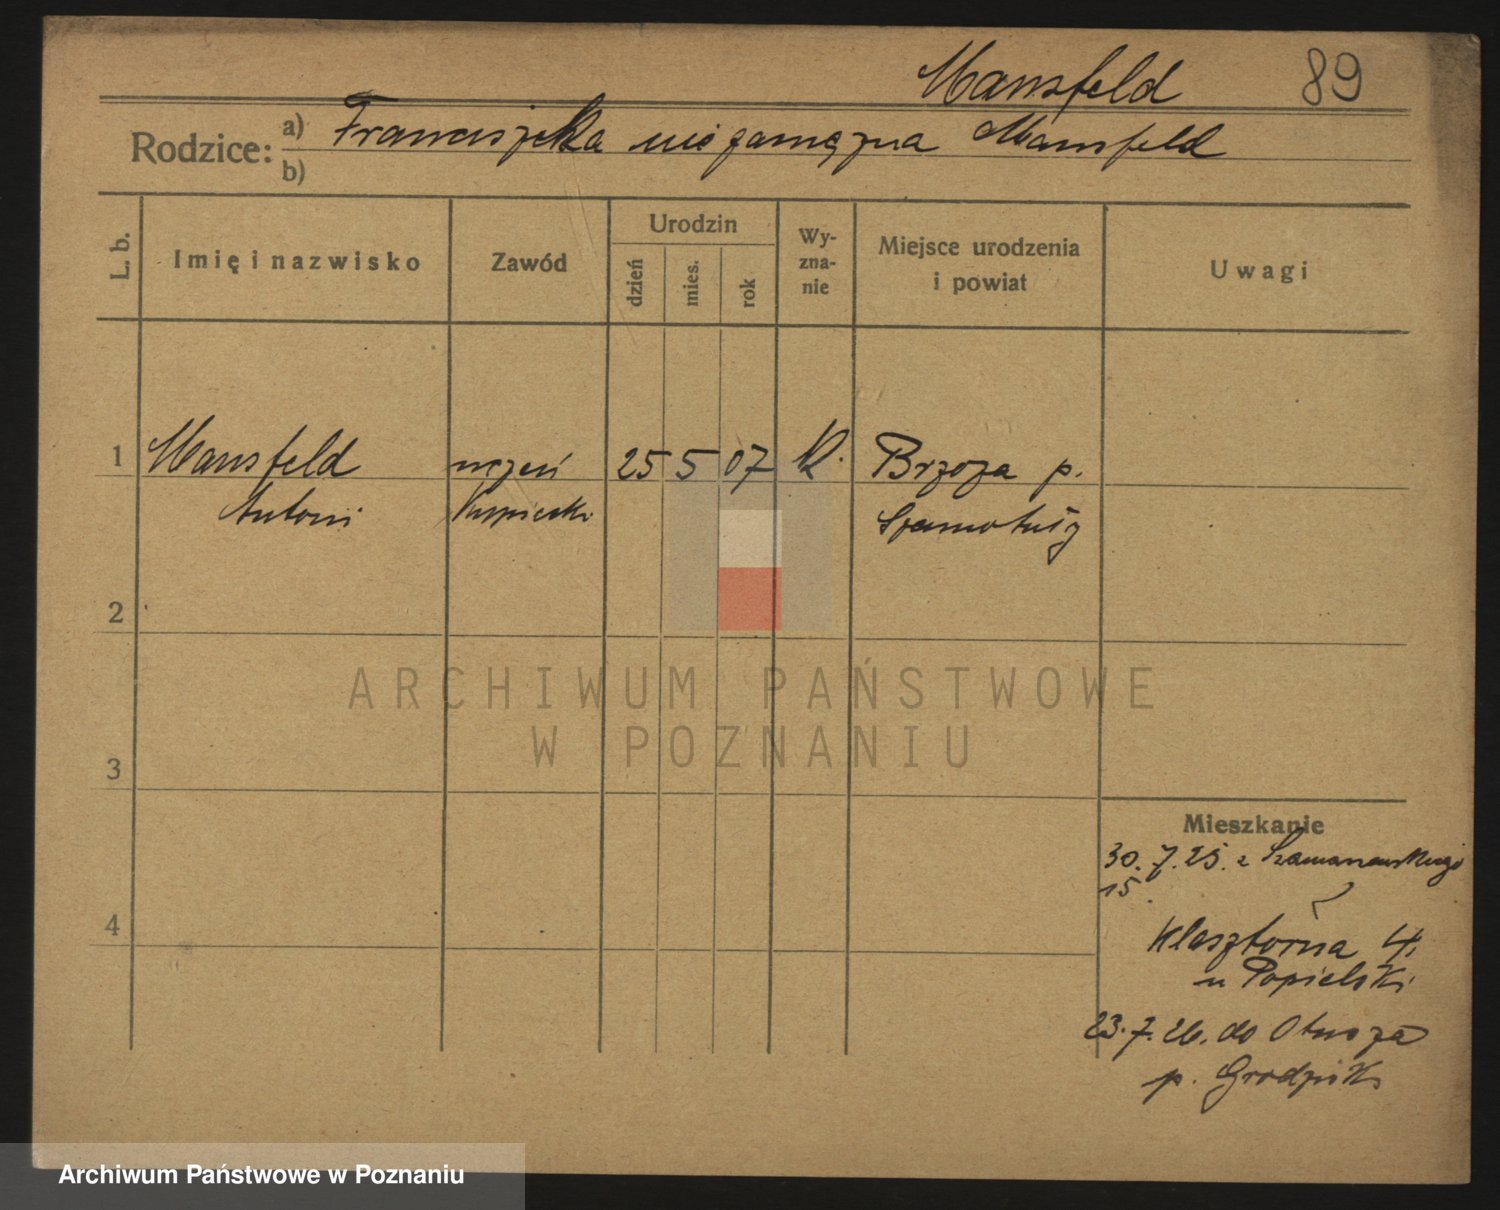 Mansfeld 89
Rodzice: a) Franciszka niezamężna Mansfeld
b)
L. b. Imię i nazwisko Zawód Urodzin dzień mies. rok Wy-zna-nie Miejsce urodzenia i powiat Uwagi
1 Mansfeld uczeń 25 5 07 K. Brzoza p.
Antoni Kupiecki Szamotuły
2
ARCHIWUM PAŃSTWOWE
W POZNANIU
3
Mieszkanie
30.7.25. z
15.
4
Klasztorna 4.
u Popielski
23.7.26. do Otusza
p. Grodzisk
Archiwum Państwowe w Poznaniu